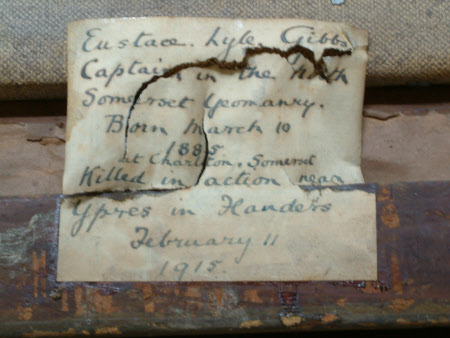 Eustace. Lyle. Gibbs
Captain in the North
Somerset Yeomanry.
Born March 10
1885
at Charlton, Somerset
Killed in action near
Ypres in Flanders
February 11
1915.